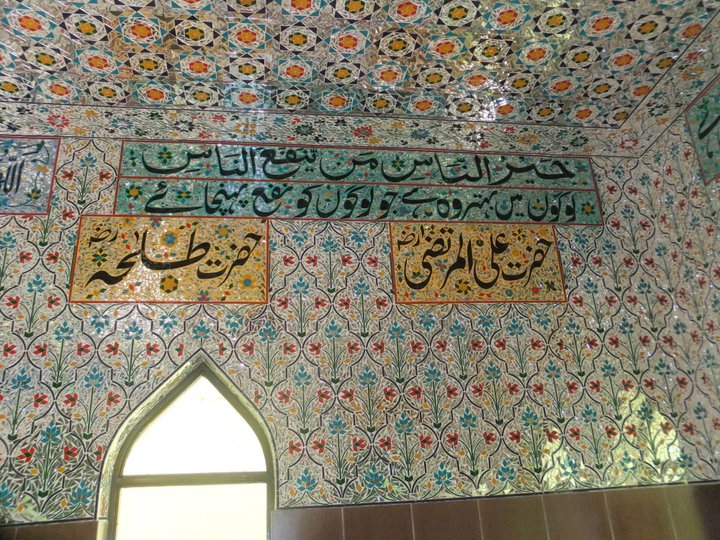 خیر الناس من ینفع الناس
لوگوں میں بہتر وہ ہے جو لوگوں کو نفع پہنچائے
حضرت علی المرتضیٰ رض
حضرت طلحہ رض